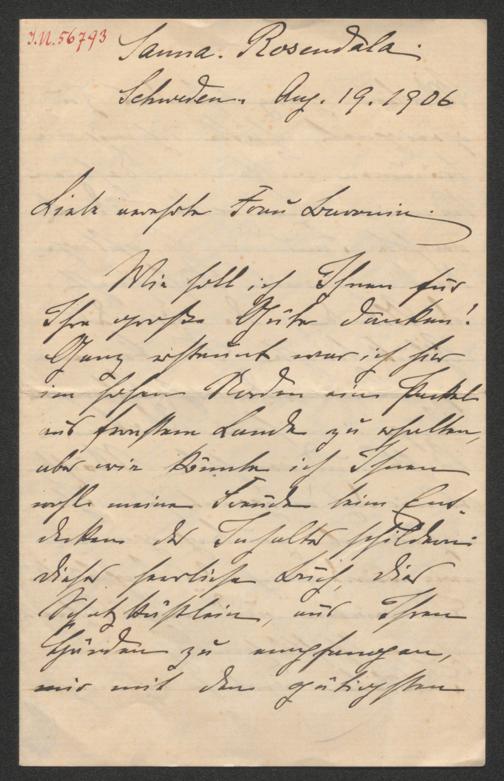 I.N. 56793
Sanna. Rosendala.
Schweden. Aug. 19. 1906
Liebe verehrte Frau Baronin.
Wie soll ich Ihnen für
Ihre große Güte danken!
Ganz erstaunt war ich hier
im hohen Norden ein Packet
aus fernstem Lande zu erhalten,
aber wie könnte ich Ihnen
wohl meine Freude beim Ent-
decken des Inhaltes schildern:
dieses herrliche Buch, dies
Schatzkästlein, aus Ihren
Händen zu empfangen,
mir mit den gütigsten